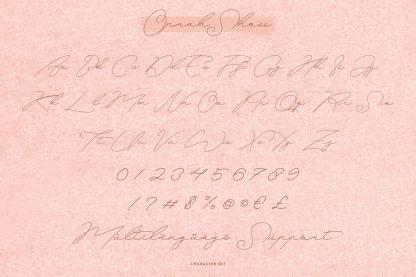 Oprah Show
Aa Bb Cc Dd Ee Ff Gg Hh Ii Jj
Kk Ll Mm Nn Oo Pp Qq Rr Ss
Tt Uu Vv Ww Xx Yy Zz
0 1 2 3 4 5 6 7 8 9
! ? # $ % @ © € £
Multilanguage Support
CHARACTER SET